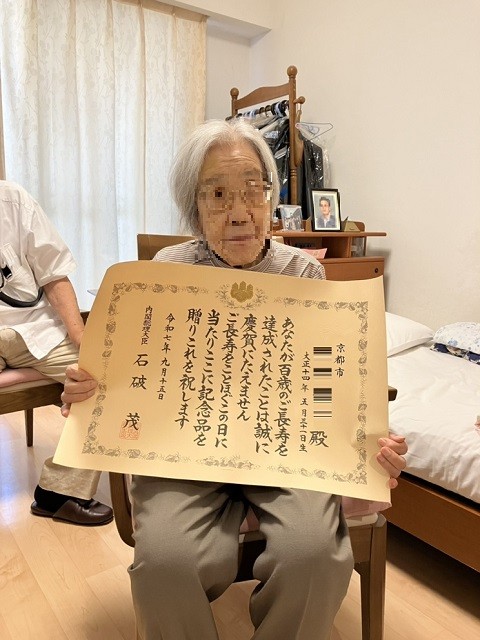 京都市
殿
大正十四年 五月三十一日生
あなたが百歳のご長寿を
達成されたことは誠に
慶賀にたえません
ご長寿をことほぐこの日に
当たりここに記念品を
贈りこれを祝します
令和七年九月十五日
内閣総理大臣 石破 茂